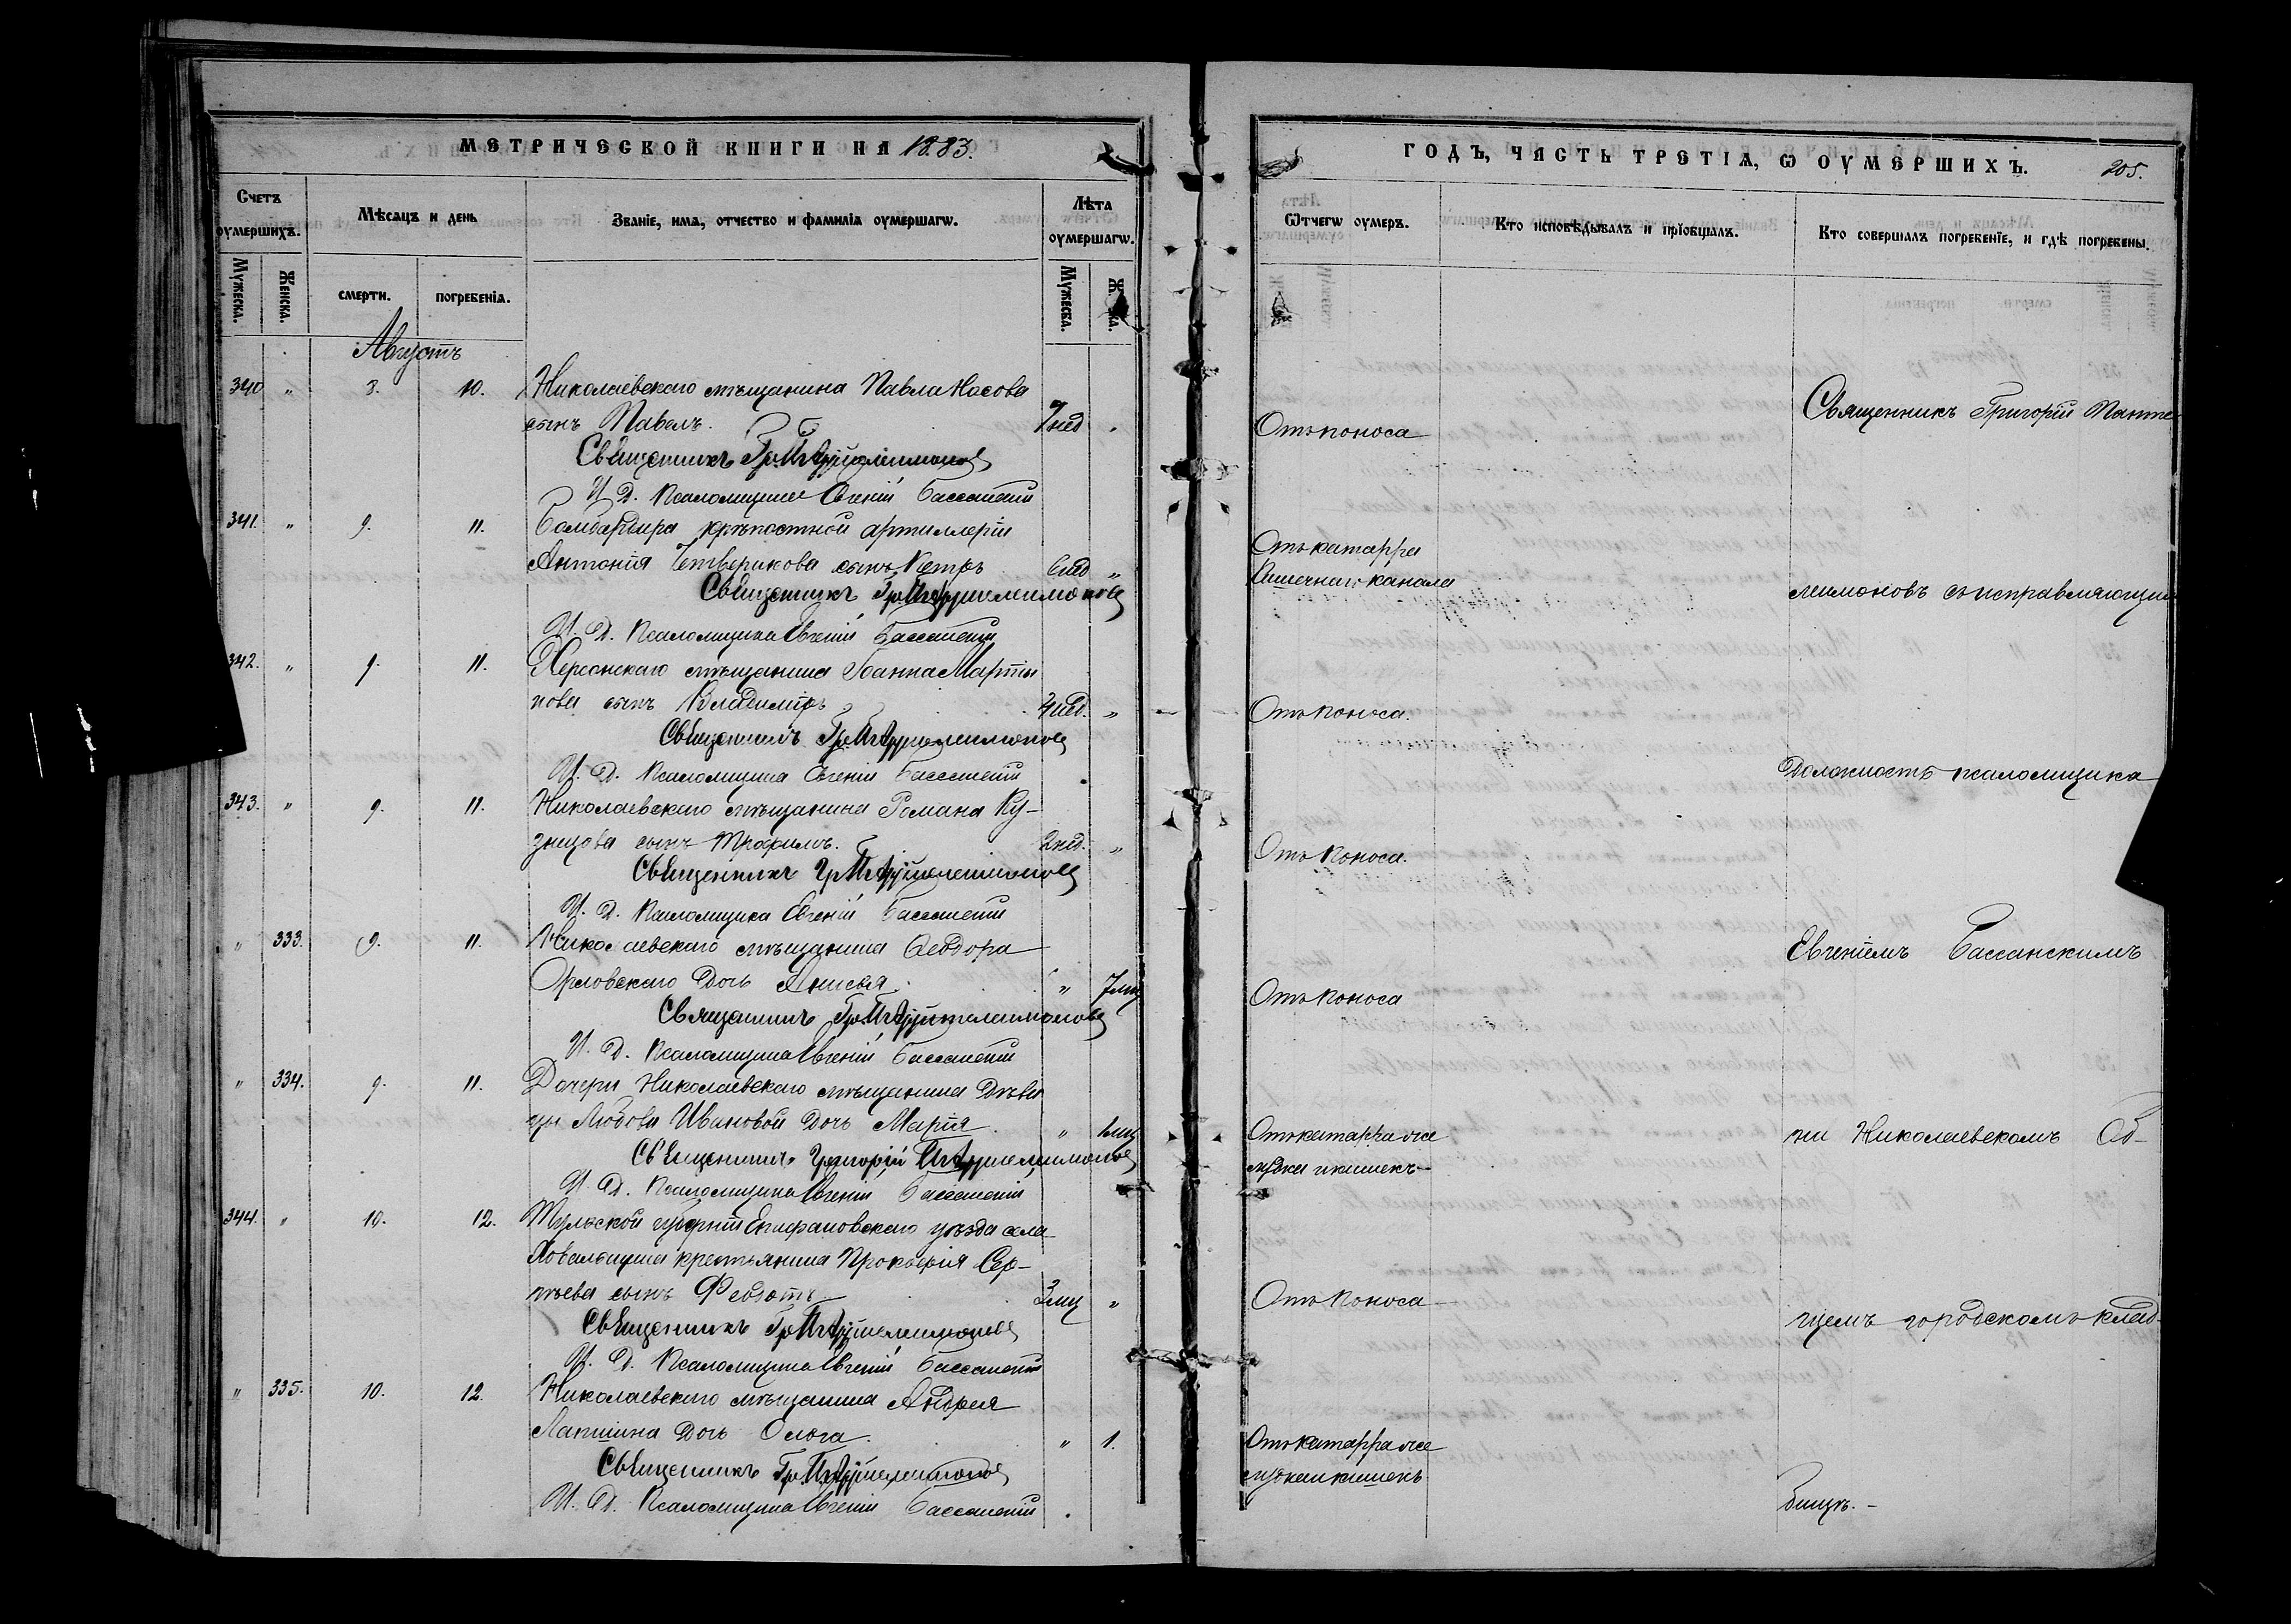 МЕТРИЧЕСКОЙ КНИГИ НА 1883.
Счетъ оумершихъ.
Мѣсяцъ и день
Званіе, имя, отчество и фамилія оумершагѡ.
Лѣта оумершагѡ.
Мужеска.
Женска.
смерти.
погребенія.
Мужеска.
Августъ
340 " 8. 10. Николаевскаго мѣщанина Павла Носова
сынъ Павелъ. 7 нед
Священникъ Гр. Пантелеимоновъ
И. Д. Псаломщика Евгеній Бассанскій
341. " 9. 11. Бомбардира крѣпостной артиллеріи
Антонія Четверикова сынъ Петръ 6 нед "
Священникъ Гр. Пантелеимоновъ
И. Д. Псаломщика Евгеній Бассанскій
342. " 9. 11. Херсонскаго мѣщанина Іоанна Марты
нова сынъ Владиміръ нед. "
Священникъ Гр. Пантелеимоновъ
И. Д. Псаломщика Евгеній Бассанскій
343. " 9. 11. Николаевскаго мѣщанина Романа Ку-
знецова сынъ Трофимъ. 2 нед. "
Священникъ Гр. Пантелеимоновъ
И. Д. Псаломщика Евгеній Бассанскій
" 333. 9. 11. Николаевскаго мѣщанина Ѳеодора
Орловскаго дочь " 7 мц
Священникъ Гр. Пантелеимоновъ
И. Д. Псаломщика Евгеній Бассанскій
" 334. 9. 11. Дочери Николаевскаго мѣщанина дѣви
цы Любови Ивановой дочь Марія. " 1 мц
Священникъ Григорій Пантелеимоновъ
И. Д. Псаломщика Евгеній Бассанскій
344. " 10. 12. Тульской губерніи Епифановскаго уѣзда села
крестьянина Прокофія Сер-
гѣева сынъ Федотъ 3 мц "
Священникъ Гр. Пантелеимоновъ
И. Д. Псаломщика Евгеній Бассанскій
" 335. 10. 12. Николаевскаго мѣщанина Андрея
Лапшина дочь Ольга. " 1.
Священникъ Гр. Пантелеимоновъ
И. Д. Псаломщика Евгеній Бассанскій
ГОДЪ, ЧАСТЬ ТРЕТІЯ, Ѡ ОУМЕРШИХЪ. 205.
Ѿтчегѡ оумеръ.
Кто исповѣдывалъ и пріобщалъ.
Кто совершалъ погребеніе, и гдѣ погребены.
Отъ поноса
Отъ катарра
кишечнаго канала
Отъ поноса.
Отъ поноса.
Отъ поноса
Отъ катарра же
лудка и кишекъ
Отъ поноса
Отъ катарра же
лудка и кишекъ
Священникъ Григорій Панте-
леимоновъ съ исправляющимъ
Должность псаломщика
Евгеніемъ Бассанскимъ
на Николаевскомъ Об-
щемъ городскомъ клад-
бищѣ.